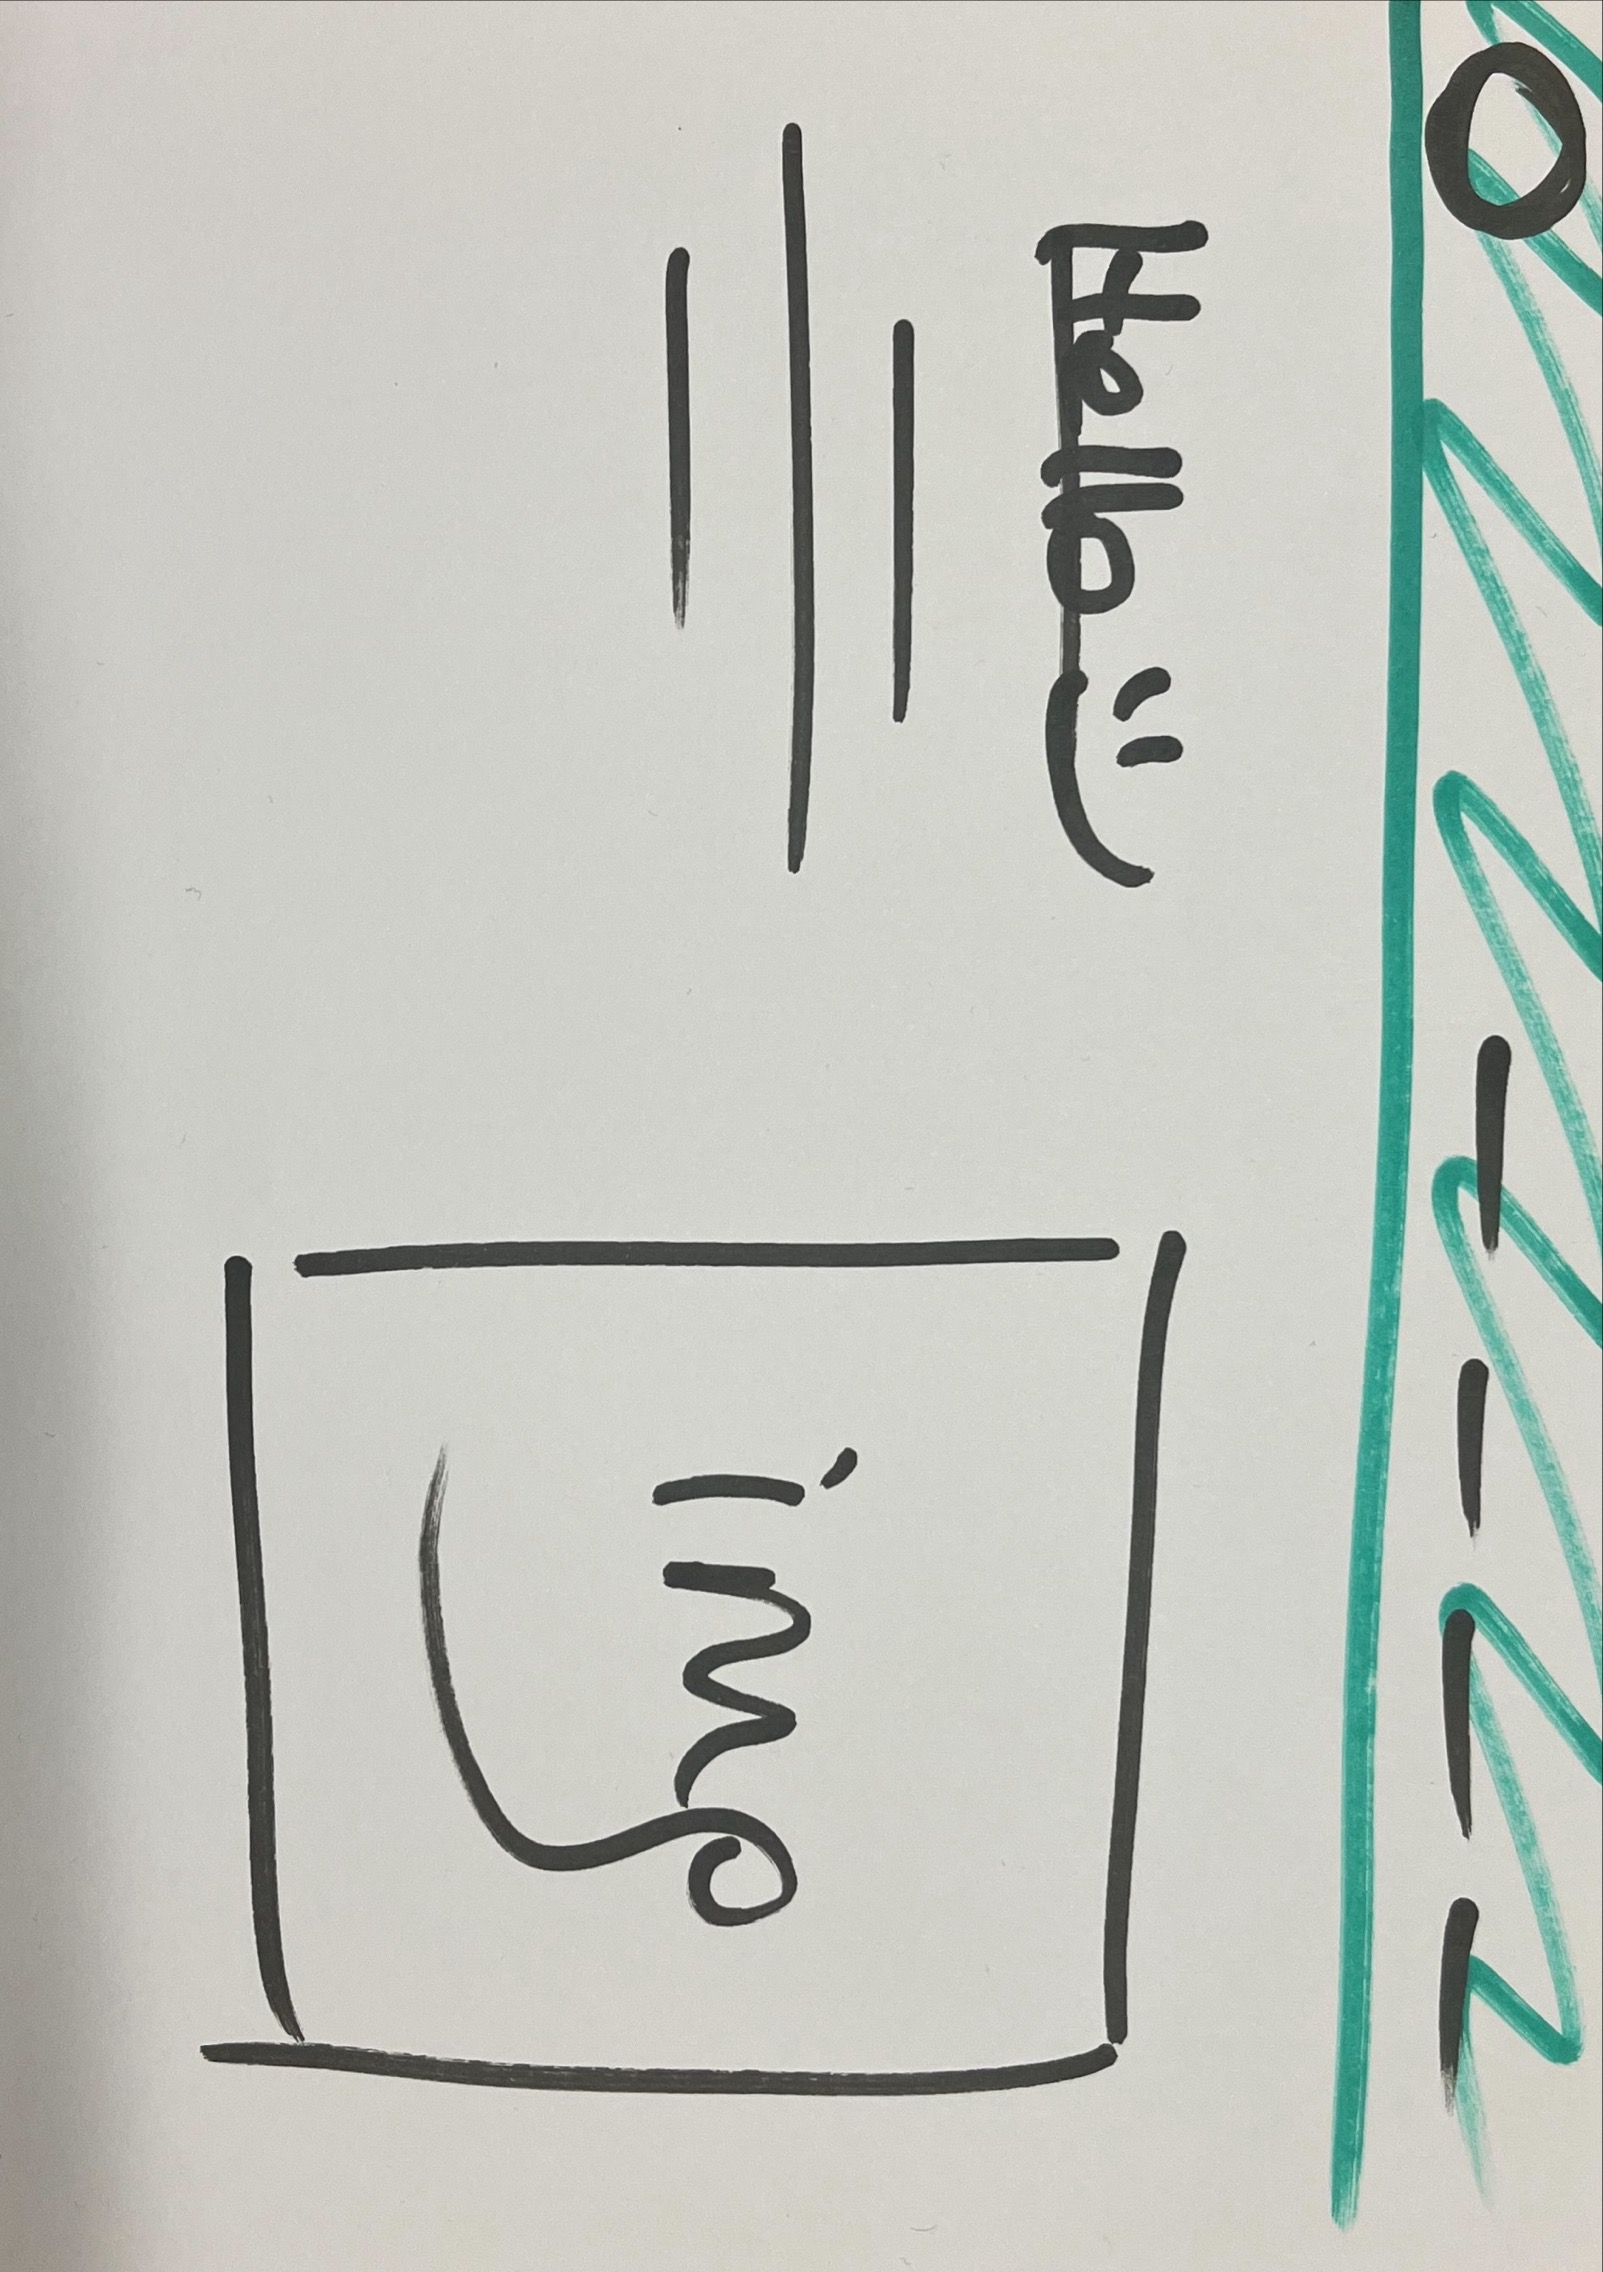 Hello
img